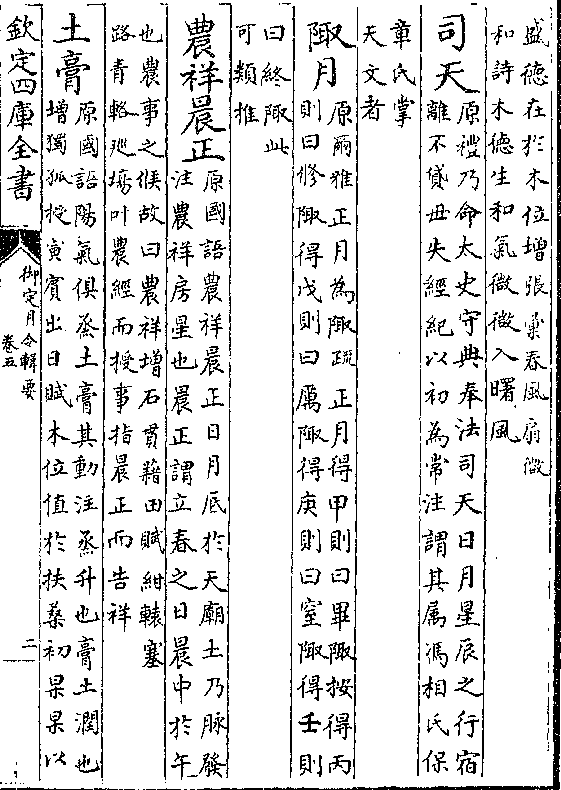 盛德在於木位增張彙春風扇微
和詩木德生和氣微微入曙風
司天原禮乃命太史守典奉法司天日月星辰之行宿
離不貸毋失經紀以初為常注謂其属馮相氏保
章氏掌
天文者
陬月原爾雅正月為陬疏正月得甲則曰畢陬按得丙
則曰修陬得戊則曰厲陬得庚則曰窒陬得壬則
曰終陬此
可類推
農祥晨正原國語農祥晨正日月底於天廟土乃脉發
注農祥房星也晨正謂立春之日晨中於午
也農事之候故曰農祥增石貫藉田賦紺轅塞
路青輅廵壝叶農經而授事指晨正而告祥
土膏原國語陽氣俱烝土膏其動注烝升也膏土潤也
增獨孤授寅賓出日賦木位值於扶桑初杲杲以
欽定四庫全書
御定月令輯要
卷五
二